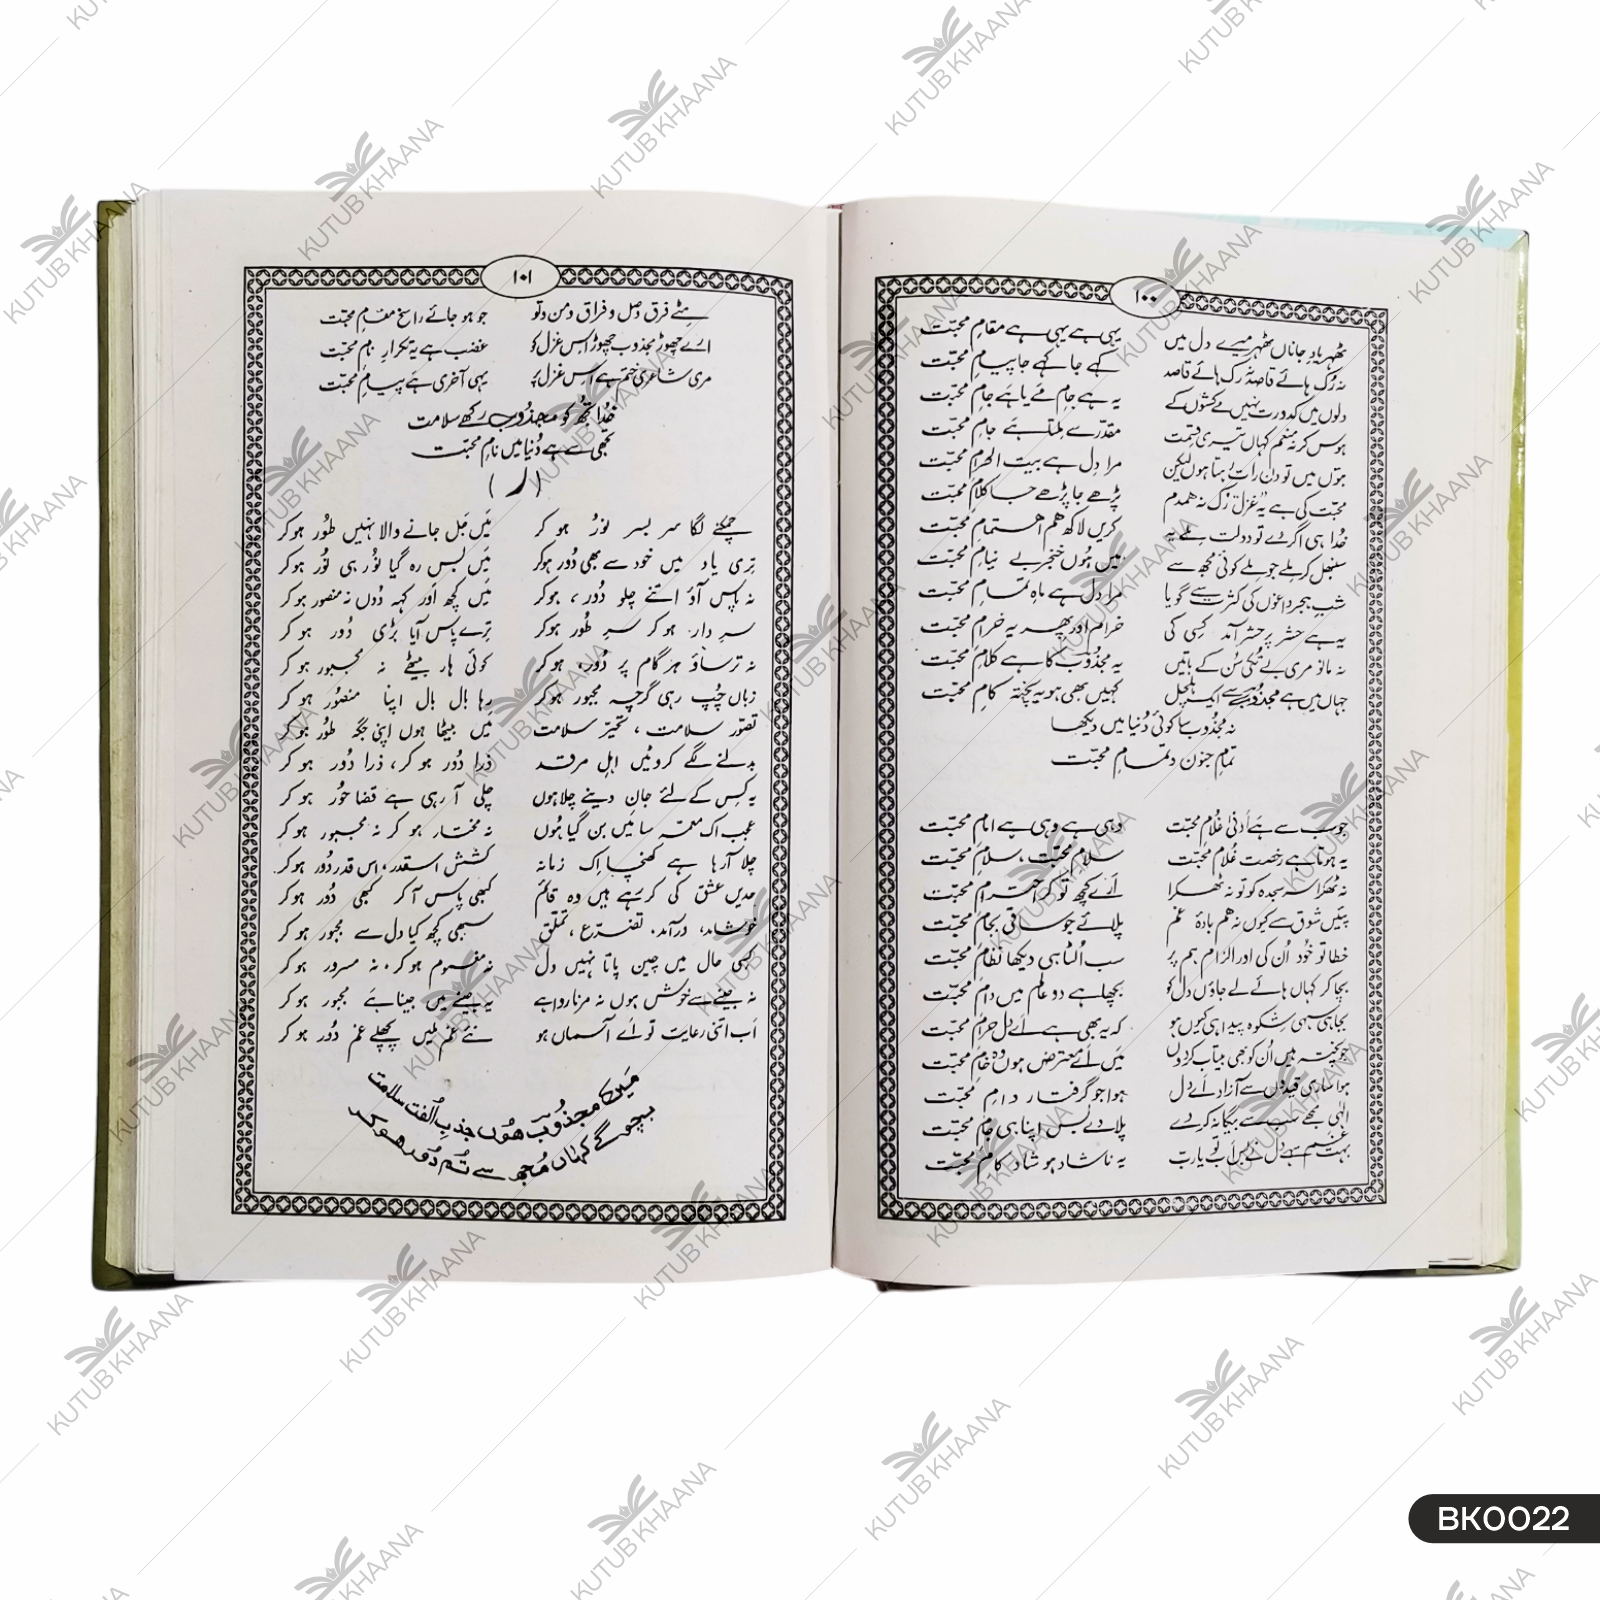 ۱۰۰
ٹھہر یادِ جاناں ٹھہر میرے دل میں یہی ہے یہی ہے مقامِ محبّت
نہ رُک ہائے قاصد نہ رُک ہائے قاصد کہے جا کہے جا پیامِ محبّت
دلوں میں کدورت نہیں مے کشوں کے یہ ہے جامِ مے یا ہے جامِ محبّت
ہوس کر نہ منعم کہاں تیری قسمت مقدّر سے ملتا ہے جامِ محبّت
بتوں میں تو دن رات رہتا ہوں لیکن مرا دل ہے بیت الحرامِ محبّت
محبّت کی ہے یہ غزل رُک نہ ہمدم پڑھے جا پڑھے جا کلامِ محبّت
خُدا ہی اگر دے تو دولت ملے یہ کریں لاکھ ہم اہتمامِ محبّت
سنبھل کر ملے جو ملے کوئی مجھ سے میں ہُوں خنجرِ بے نیامِ محبّت
شبِ ہجر داغوں کی کثرت سے گویا مرا دل ہے ماہِ تمامِ محبّت
یہ ہے حشر پر حشر آمد کسی کی خرام اور پھر یہ خرامِ محبّت
نہ مانو مری بے تُکی سُن کے باتیں یہ مجذُوب کا ہے کلامِ محبّت
جہاں میں ہے مجذوب سے ایک ہلچل کہیں بھی ہو یہ پختہ کامِ محبّت
نہ مجذُوب سا کوئی دُنیا میں دیکھا
تمامِ جنون و تمامِ محبّت
جو سب سے ہے اَدنیٰ غُلامِ محبّت وہی ہے وہی ہے امامِ محبّت
یہ ہوتا ہے رخصت غُلامِ محبّت سلامِ محبّت، سلامِ محبّت
نہ ٹھکرا سرِ سجدہ کو تو نہ ٹھکرا اَرے کچھ تو کر احترامِ محبّت
پئیں شوق سے کیوں نہ ہم بادۂ غم پلائے جو ساقی بجامِ محبّت
خطا تو خُود اُن کی اور الزام ہم پر سب اُلٹا ہی دیکھا نظامِ محبّت
بچا کر کہاں ہائے لے جاؤں دل کو بچھا ہے دو عالم میں دامِ محبّت
بجا ہی سہی شکوہ پیدا ہی کیوں ہو کہ یہ بھی ہے اے دل حرامِ محبّت
جو پختہ ہیں اُن کو بھی بیتاب کر دوں میں اے معترض ہوں وہ خامِ محبّت
ہوا ساری قیدوں سے آزاد اے دل ہوا جو گرفتارِ دامِ محبّت
الٰہی مجھے سب سے بیگانہ کر دے پلا دے بس اپنا ہی جامِ محبّت
بہت غم سہے دل نے بس اَب تو یا ربّ یہ ناشاد ہو شاد کامِ محبّت
۱۰۱
مٹے فرقِ وصل و فراق و من و تو جو ہو جائے راسخ مقامِ محبّت
ارے چھوڑ مجذوب چھوڑ اس غزل کو غضب ہے یہ تکرارِ نامِ محبّت
مری شاعری ختم ہے اس غزل پر یہی آخری ہے پیامِ محبّت
خُدا تجھ کو مجذوب رکھے سلامت
تجھی سے ہے دُنیا میں نامِ محبّت
(ر)
چمکنے لگا سر بسر نُور ہو کر مَیں جَل جانے والا نہیں طُور ہو کر
تِری یاد میں خود سے بھی دُور ہو کر مَیں بس رہ گیا نُور ہی نُور ہو کر
نہ پاس آؤ اتنے چلو دُور، ہو کر مَیں کچھ اَور کہہ دُوں نہ منصور ہو کر
سرِ دار ہو کر سرِ طُور ہو کر تِرے پاس آیا بڑی دُور ہو کر
نہ ترساؤ ہر گام پر دُور، ہو کر کوئی ہار بیٹھے نہ مجبور ہو کر
زباں چُپ رہی گرچہ مجبور ہو کر رہا بال بال اپنا منصُور ہو کر
تصوّر سلامت، تحیّر سلامت مَیں بیٹھا ہوں اپنی جگہ طُور ہو کر
بدلنے لگے کروٹیں اہلِ مرقد ذرا دُور ہو کر، ذرا دُور ہو کر
یہ کِس کے لئے جان دینے چلا ہوں چلی آ رہی ہے قضا حُور ہو کر
عجب اک معمہ سا مَیں بن گیا ہُوں نہ مختار ہو کر نہ مجبور ہو کر
چلا آ رہا ہے کھنچا اِک زمانہ کشش اسقدر، اس قدر دُور ہو کر
حدیں عشق کی کر رہے ہیں وہ قائم کبھی پاس آ کر کبھی دُور ہو کر
خوشامد، درآمد، تضرّع، تملّق سبھی کچھ کیا دل سے مجبور ہو کر
کسی حال میں چین پاتا نہیں دل نہ مغموم ہو کر، نہ مسرور ہو کر
نہ جینے سے خوش ہوں نہ مرنا روا ہے یہ جینے میں جینا ہے مجبور ہو کر
اَب اتنی رعایت تو اے آسماں ہو نئے غم ملیں پچھلے غم دُور ہو کر
مَیں مجذُوب ہُوں جذبِ اُلفت سلامت
بچو گے کہاں مُجھ سے تُم دُور ہو کر
KUTUB KHAANA
BK0022